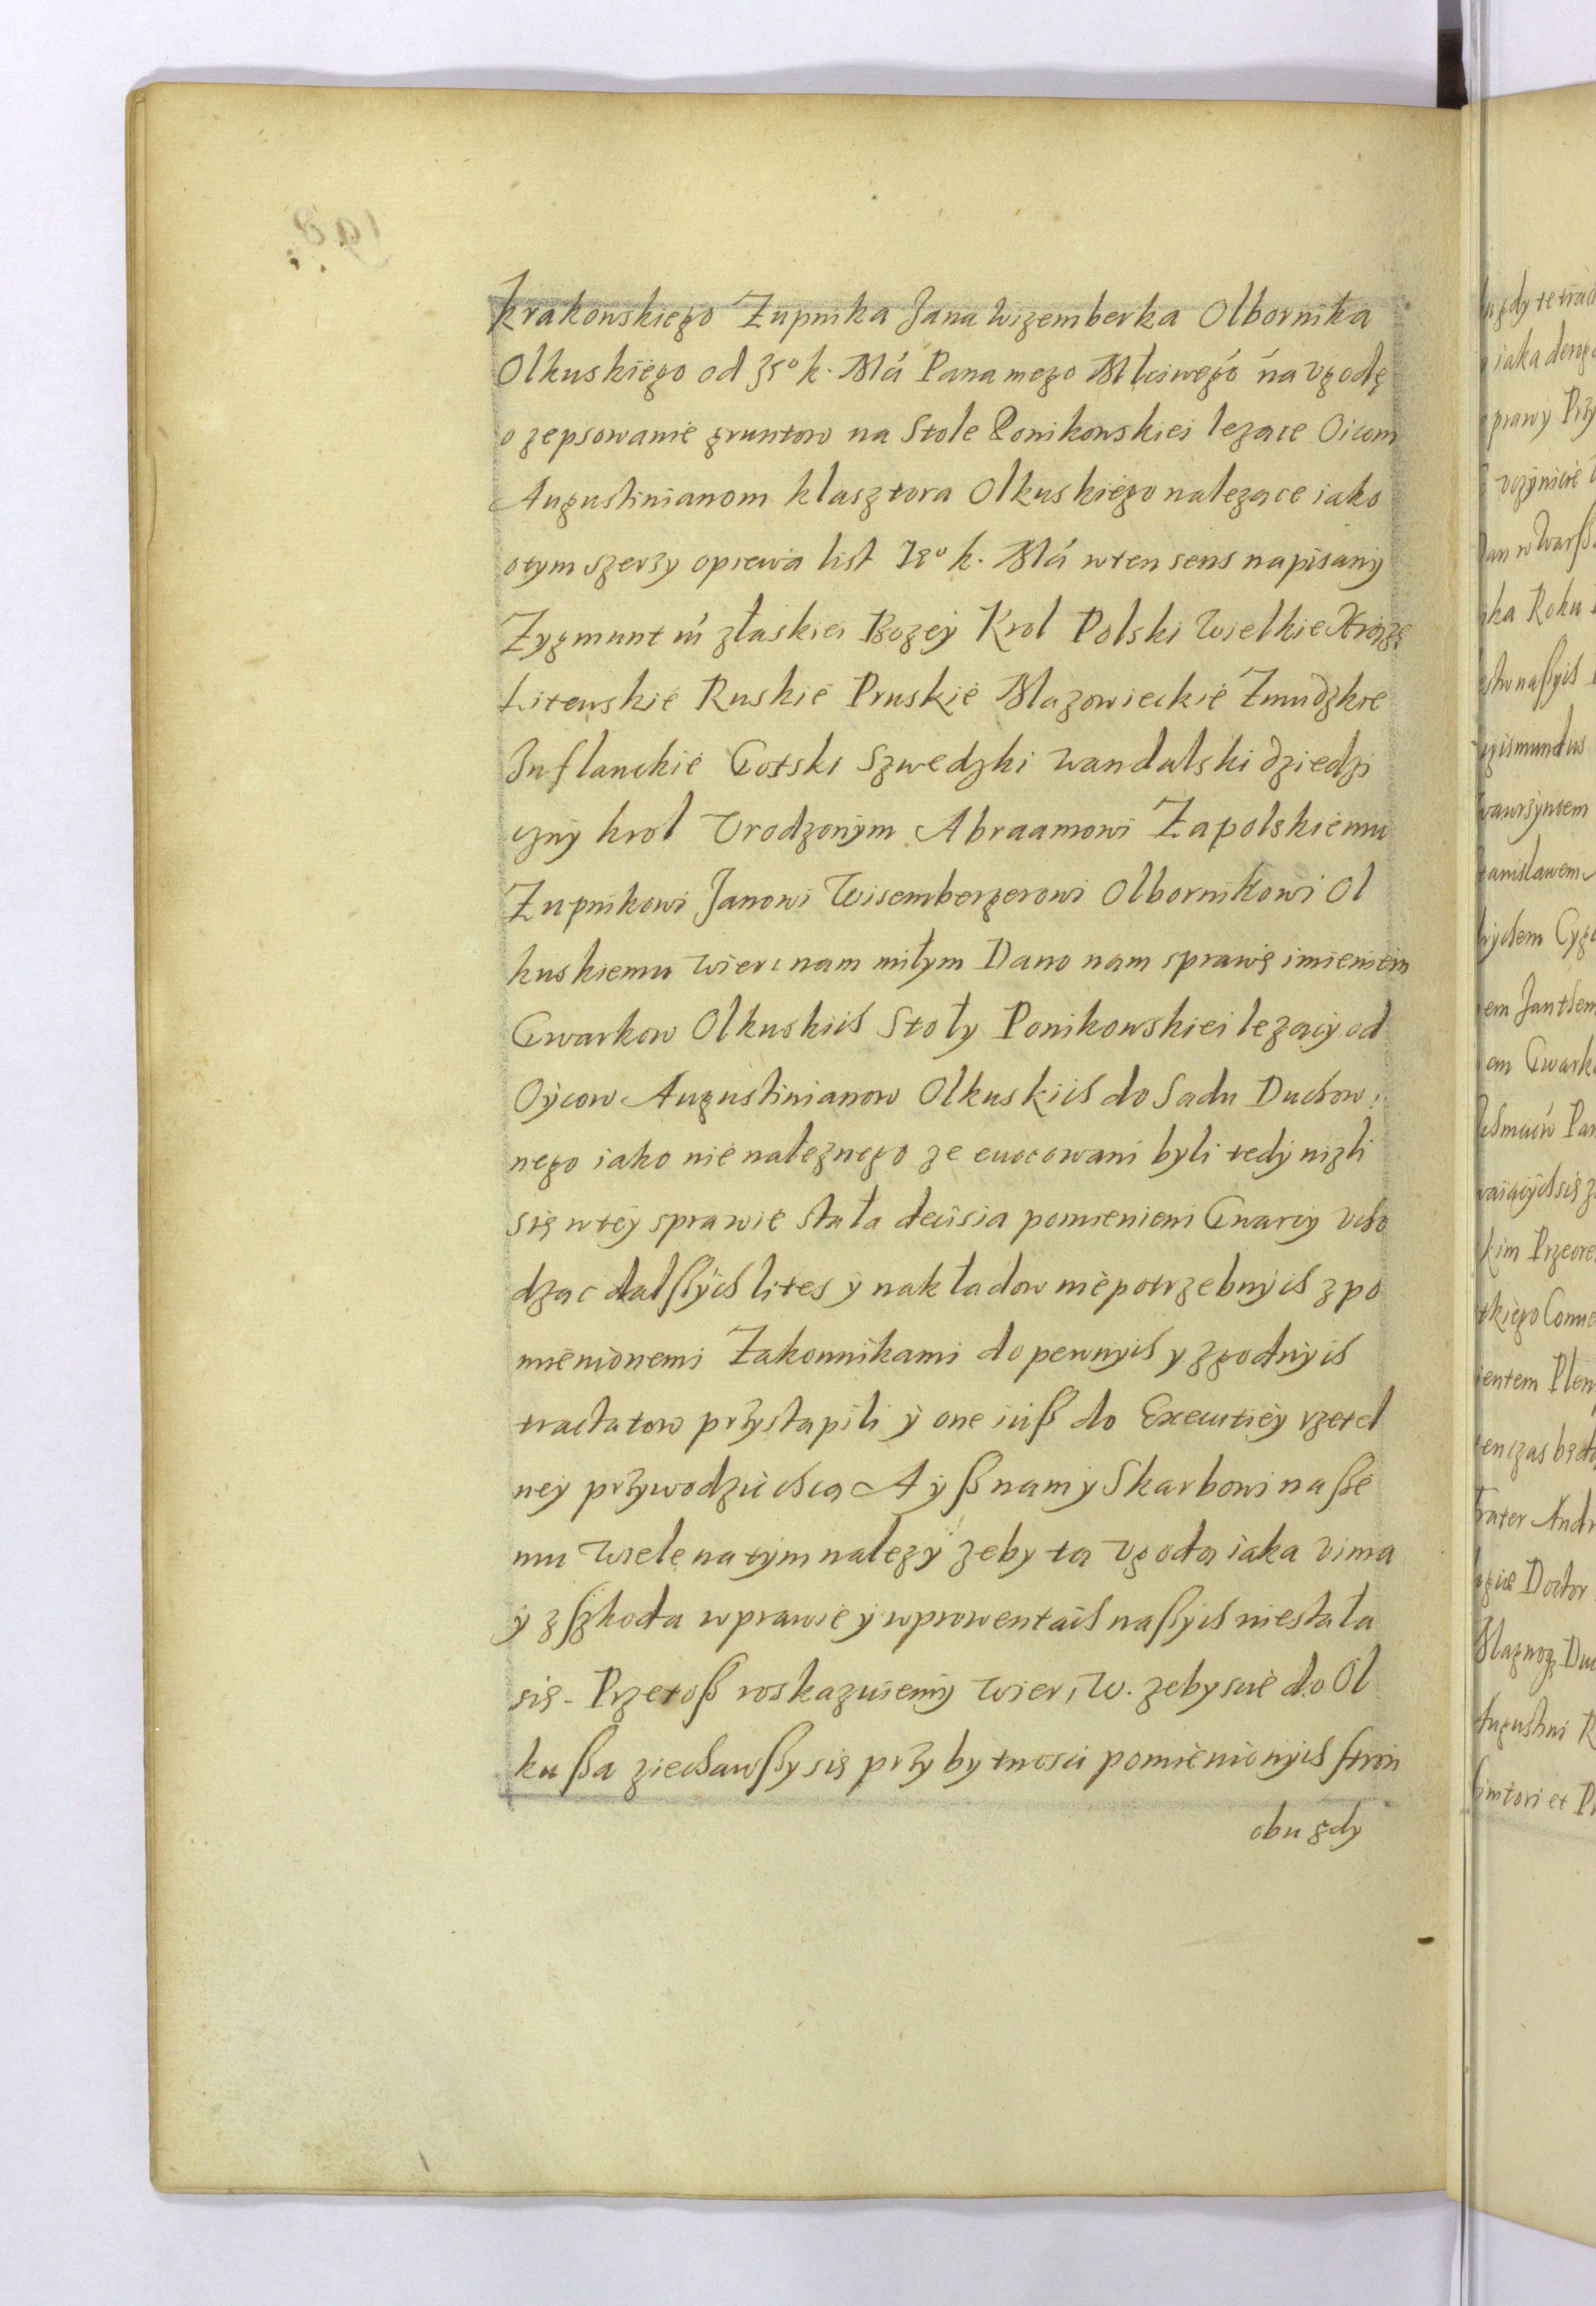 krakowskiego Zupnika Jana Wizemberka Olbornika
Olkuskiego od J<sup>o</sup> k. Mći Pana mego Młciwego na vgodę
o zepsowanie gruntow na Stole Ponikowskiei lezące Oicom
Augustinianom klasztora Olkuskiego nalezące iako
otym szerzy opiewa list J<sup>o</sup> k. Mći wten sens napisany
Zygmunt III złaskiei Bozey Krol Polski Wielkie Xiąze
Litewskie Ruskie Pruskie Mazowieckie Zmudzkie
Inflanckie Gotski Szwedzki Wandalski dziedzi
czny krol Vrodzonym Abraamowi Zapolskiemu
Zupnikowi Janowi Wisembergerowi Olbornikowi Ol
kuskiemu wiernam miłym Dano nam sprawę imieniem
Gwarkow Olkuskich Stoły Ponikowskiei lezący od
Oycow Augustinianow Olkuskich do Sadu Duchow
nego iako nie naleznego ze euocowani byli tedy nizli
się wtey sprawie stała decisia pomienieni Gwarcy vcho
dzac dalßych lites y nakładow niepotrzebnych z po
mienionemi Zakonnikami do pewnych y zgodnych
tractatow przystapili y one iuß do Executiey rzetel
ney przywodzić chcą A yß nam y Skarbowi naße
mu wiele natym nalezy zeby ta vgoda iaka vima
y zßkoda wprawie y wprowentach naßych niestała
się. Przetoß roskazuiemy wier, W. zebyscie do Ol
kußa ziechawßysię przybytnosci pomienionych stron
obu gdy
gdy te trac
iaka derog
prawy Przy
vczynicie
Roku
naßych
gismundus
wawrzyncem
tanislawem
Cyg
Gwark
Przeore
kiego Conue
Plen
czas
Doctor